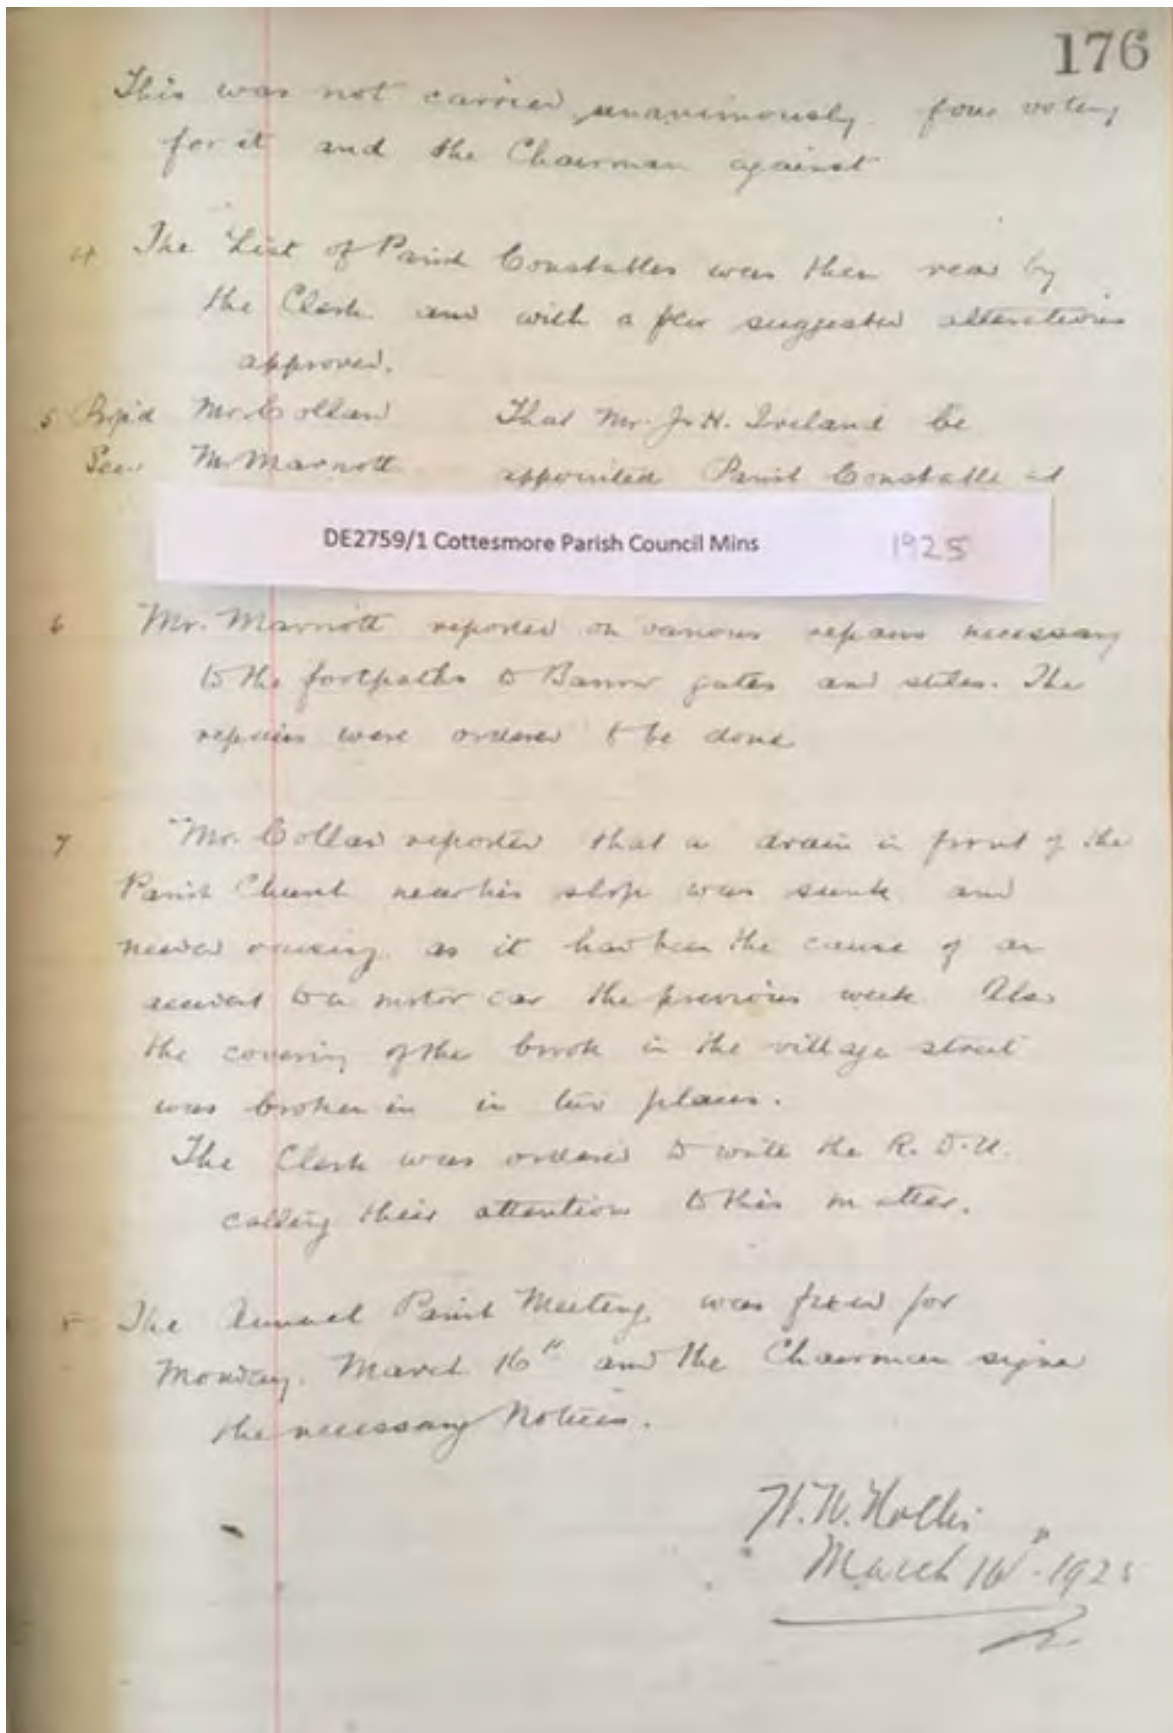 176
This was not carried unanimously four voting
for it and the Chairman against
4 The List of Parish Constables was then read by
the Clerk and with a few suggested alterations
approved.
5 Prop'd Mr. Collard That Mr. J. H. Ireland be
Secd Mr Marriott appointed Parish Constable at
DE2759/1 Cottesmore Parish Council Mins 1925
6 Mr. Marriott reported on various repairs necessary
to the footpaths to Barrow gates and stiles. The
repairs were ordered to be done
7 Mr. Collard reported that a drain in front of the
Parish Church near his shop was sunk and
needed raising as it had been the cause of an
accident to a motor car the previous week Also
the covering of the brook in the village street
was broken in in two places.
The Clerk was ordered to write the R. D. C.
calling their attention to this matter.
8 The Annual Parish Meeting was fixed for
Monday. March 16th and the Chairman signed
the necessary Notices.
Hollis
March 16th 1925